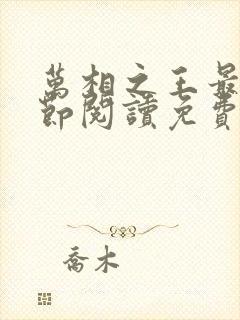 萬相之王最
節閱讀免費
喬木